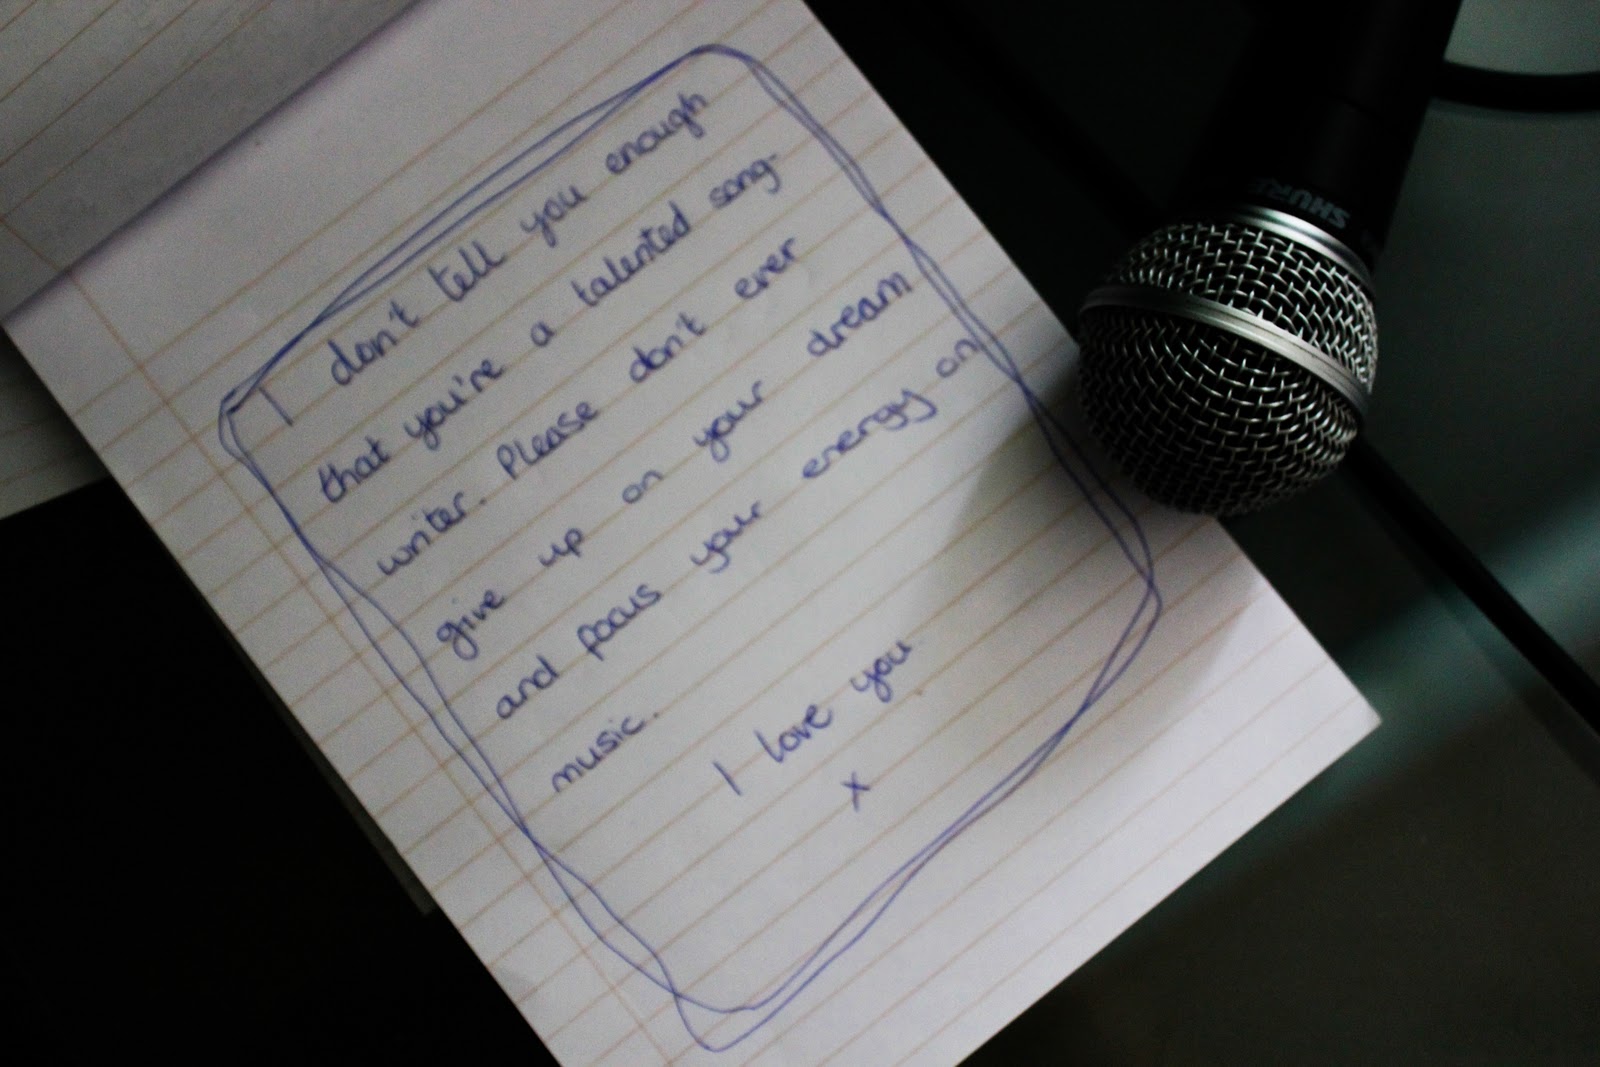 I don't tell you enough
that you're a talented song-
writer. Please don't ever
give up on your dream
and focus your energy on
music.
I love you
x
SHURE